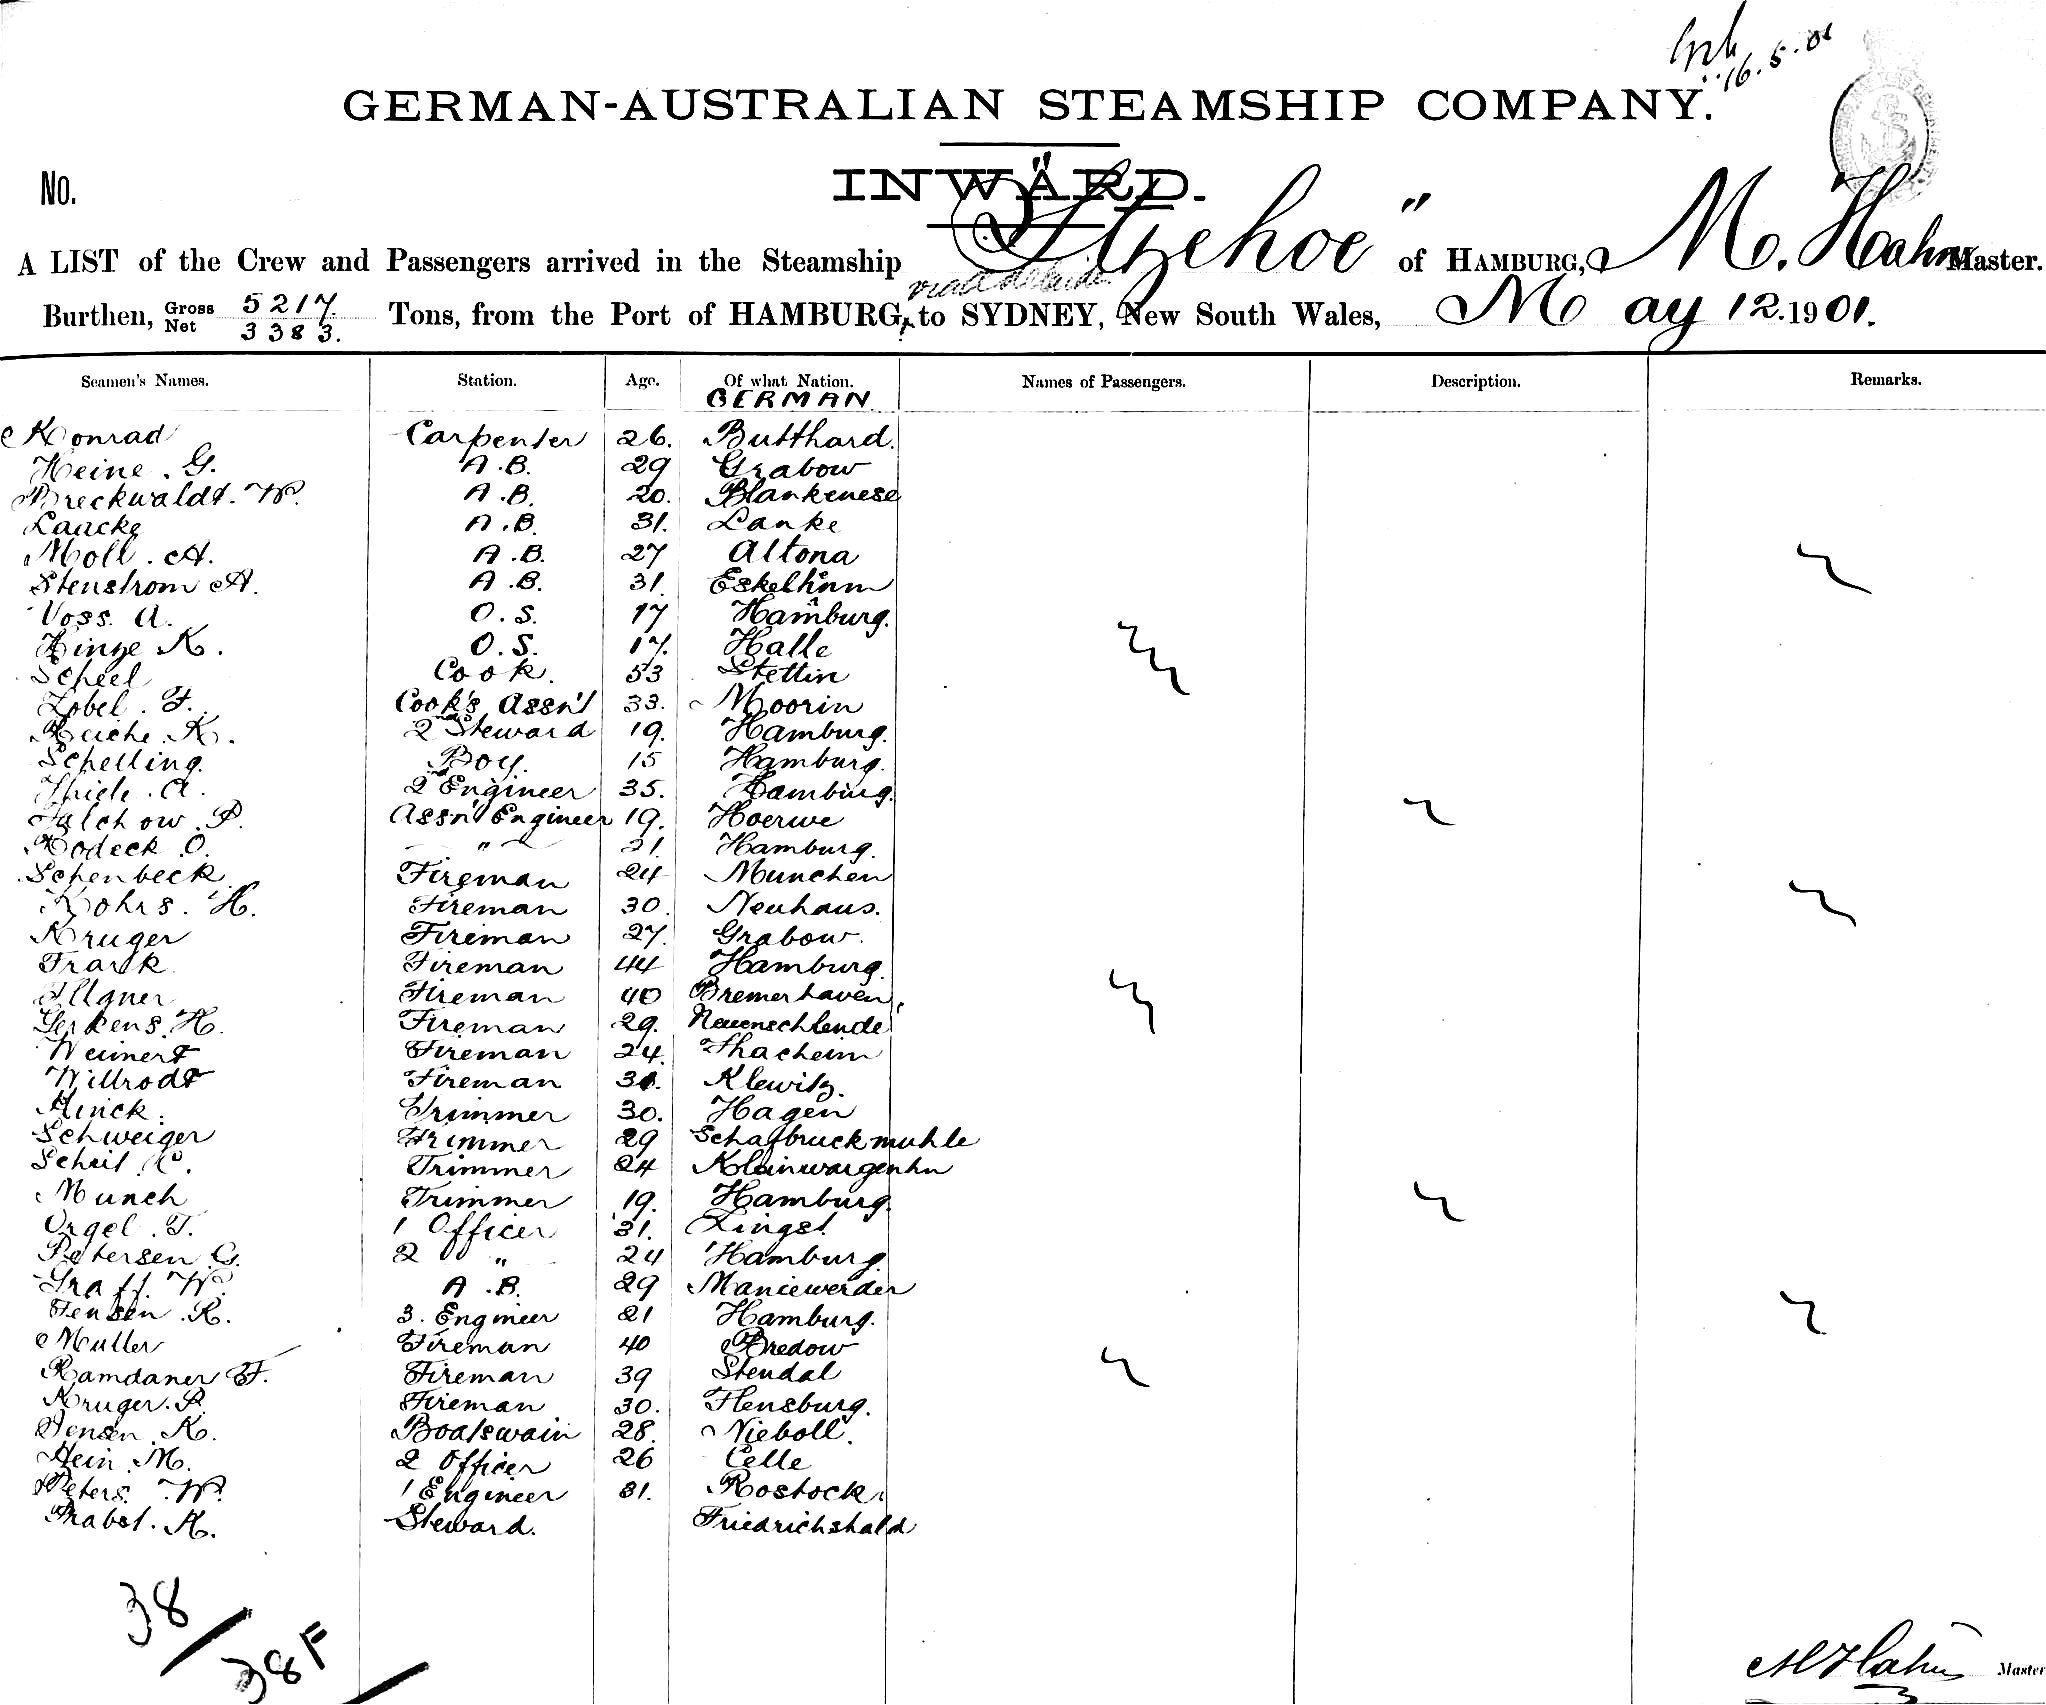 16.5.01
GERMAN-AUSTRALIAN STEAMSHIP COMPANY.
INWARD.
No.
A LIST of the Crew and Passengers arrived in the Steamship "Itzehoe" of HAMBURG, M. Hahn Master.
via Adelaide
Burthen, Gross 5217. Net 3383. Tons, from the Port of HAMBURG, to SYDNEY, New South Wales, May 12. 1901.
Seamen's Names. Station. Age. Of what Nation. Names of Passengers. Description. Remarks.
GERMAN
Konrad Carpenter 26. Butthard.
Heine. G. A.B. 29 Grabow
Breckwaldt. W. A.B. 20. Blankenese
Laacke A.B. 31. Lanke
Moll. A. A.B. 27 Altona
Stenstrom A. A.B. 31. Eskelhem
Voss. A. O.S. 17 Hamburg.
Hinze K. O.S. 17. Halle
Scheel Cook. 53 Stettin
Zobel. F. Cook's Assn't 33. Moorin
Reiche. K. 2nd Steward 19. Hamburg.
Schelling. Boy. 15 Hamburg.
Thiele. A. 2nd Engineer 35. Hamburg.
Falchow. P. Assn't Engineer 19. Hoerwe
Rodeck. O. " 21. Hamburg.
Schenbeck Fireman 24 Munchen
Rohrs. H. Fireman 30. Neuhaus.
Kruger Fireman 27. Grabow.
Frank Fireman 44 Hamburg.
Illgner Fireman 40 Bremerhaven.
Gerkens. H. Fireman 29. Neuenschlende
Weinert Fireman 24. Thacheim
Willrodt Fireman 31. Klewitz.
Hinck. Trimmer 30. Hagen
Schweiger Trimmer 29 Schafbruckmuhle
Trimmer 24 Kleinwargenhn
Munch Trimmer 19. Hamburg
Orgel. T. 1 Officer 31. Zingst.
Petersen G. 2 " 24 Hamburg.
Graff. W. A.B. 29 Maniewerder
Jensen. R. 3. Engineer 21 Hamburg.
Muller Fireman 40 Bredow
Ramdaner F. Fireman 39 Stendal
Kruger. P. Fireman 30. Flensburg.
Jensen. K. Boatswain 28. Nieboll.
Hein. M. 2 Officer 26 Celle
Peters. W. 1 Engineer 31. Rostock.
Prabst. K. Steward. Friedrichshald
38
38 F
M Hahn Master